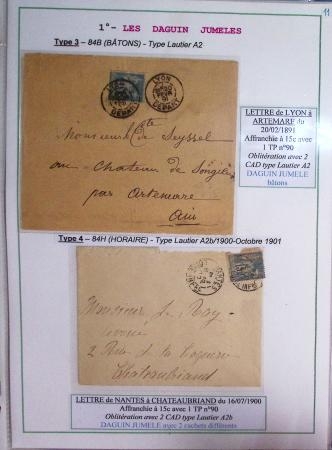 11
1°- LES DAGUIN JUMELES
Type 3 – 84B (BÂTONS) - Type Lautier A2
LYON
DEPART
LYON
DEPART
LETTRE de LYON à
ARTEMARE du
20/02/1891
Affranchie à 15c avec
1 TP n°90
Oblitération avec 2
CAD type Lautier A2
DAGUIN JUMELE
bâtons
Monsieur le Cte de Seyssel
au Chateau de
par Artemare
Ain
Type 4 – 84H (HORAIRE) - Type Lautier A2b/1900-Octobre 1901
NANTES
Monsieur Le Ray
2 Rue de la
Chateaubriand
LETTRE de NANTES à CHATEAUBRIAND du 16/07/1900
Affranchie à 15c avec 1 TP n°90
Oblitération avec 2 CAD type Lautier A2b
DAGUIN JUMELE avec 2 cachets différents